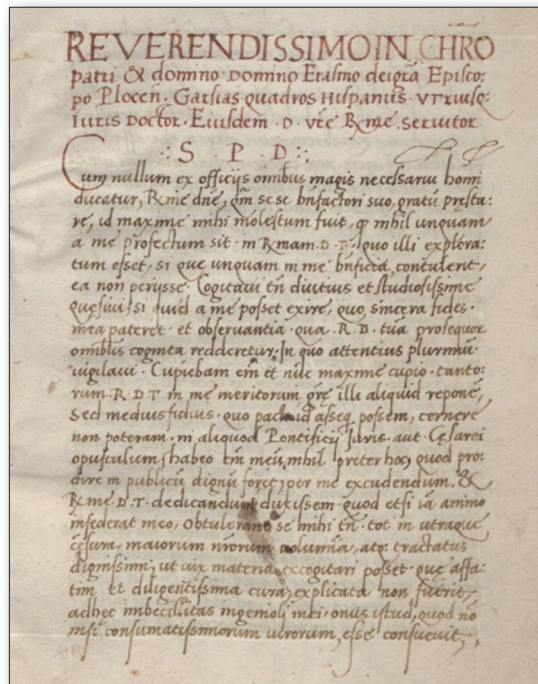 REVERENDISSIMO IN CHRO
patri & domino Domino Erasmo dei gr̃a Episco:
po Plocen̄. Garsias quadros Hispanus. vtriusq̃
Iuris Doctor. Eiusdem. D. vr̃e R̃me. seruitor
.: S P D :.
Cum nullum ex officijs omĩbus magis necessariũ homĩ
ducatur, R̃me dñe, q̃m se se bñfactori suo, gratũ pręsta:
re, id maxime mihi molestum fuit, q̃ nihil unquam
a me profectum sit in R̃mam. D. T. quo illi explora:
tum esset, si quę unquam in me bñficia contulerit,
ea non perijsse. Cogitaui tñ diutius et studiosissime
quęsiui, si quid a me posset exire, quo, sincera fides
mea pateret. et obseruantia. qua. R. D. tũa prosequor
omĩbus cognita redderetur, In quo attentius plurimũ
uigilaui. Cupiebam em̃ et nũc maxime cupio. tanto:
rum. R. D T in me meritorum gr̃e illi aliquid reponẽ,
Sed mediusfidius. quo pacto id asseq̃ possem, cernere
non poteram. ni aliquod Pontificij Iuris. aut. Cęsarei
opusculum (habeo em̃ meũ, nihil pręter hoc) quod pro:
dire in publicũ dignũ foret, per me excudendum. &
R̃me. D. T. dedicandum duxissem quod etsi iã animo
insederat meo, Obtulerant se mihi tñ. tot in utraque
cęsura, maiorum nr̃orum uolumina, atq̃ tractatus
dignissimi, ut uix materia excogitari posset quę affa:
tim et diligentissima cura, explicata non fuerit,
adhęc imbecillitas ingenioli mei. onus istud, quod nõ
nisi consumatissimorum uirorum, esse consueuit,